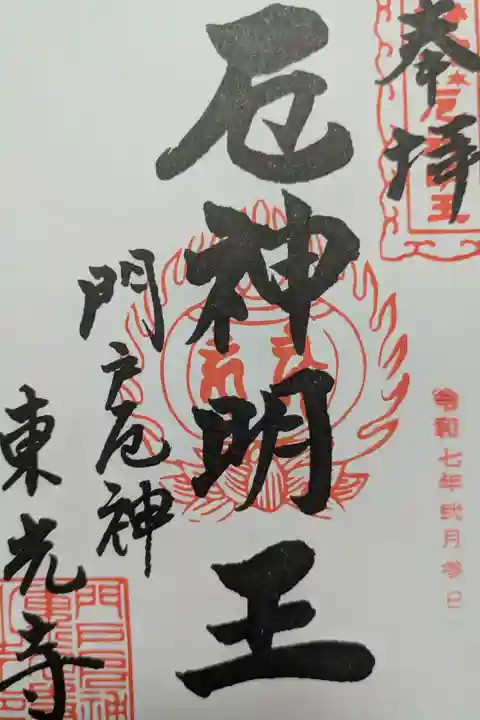 奉拝
厄神明王
門戸厄神
東光寺
令和七年弐月参日